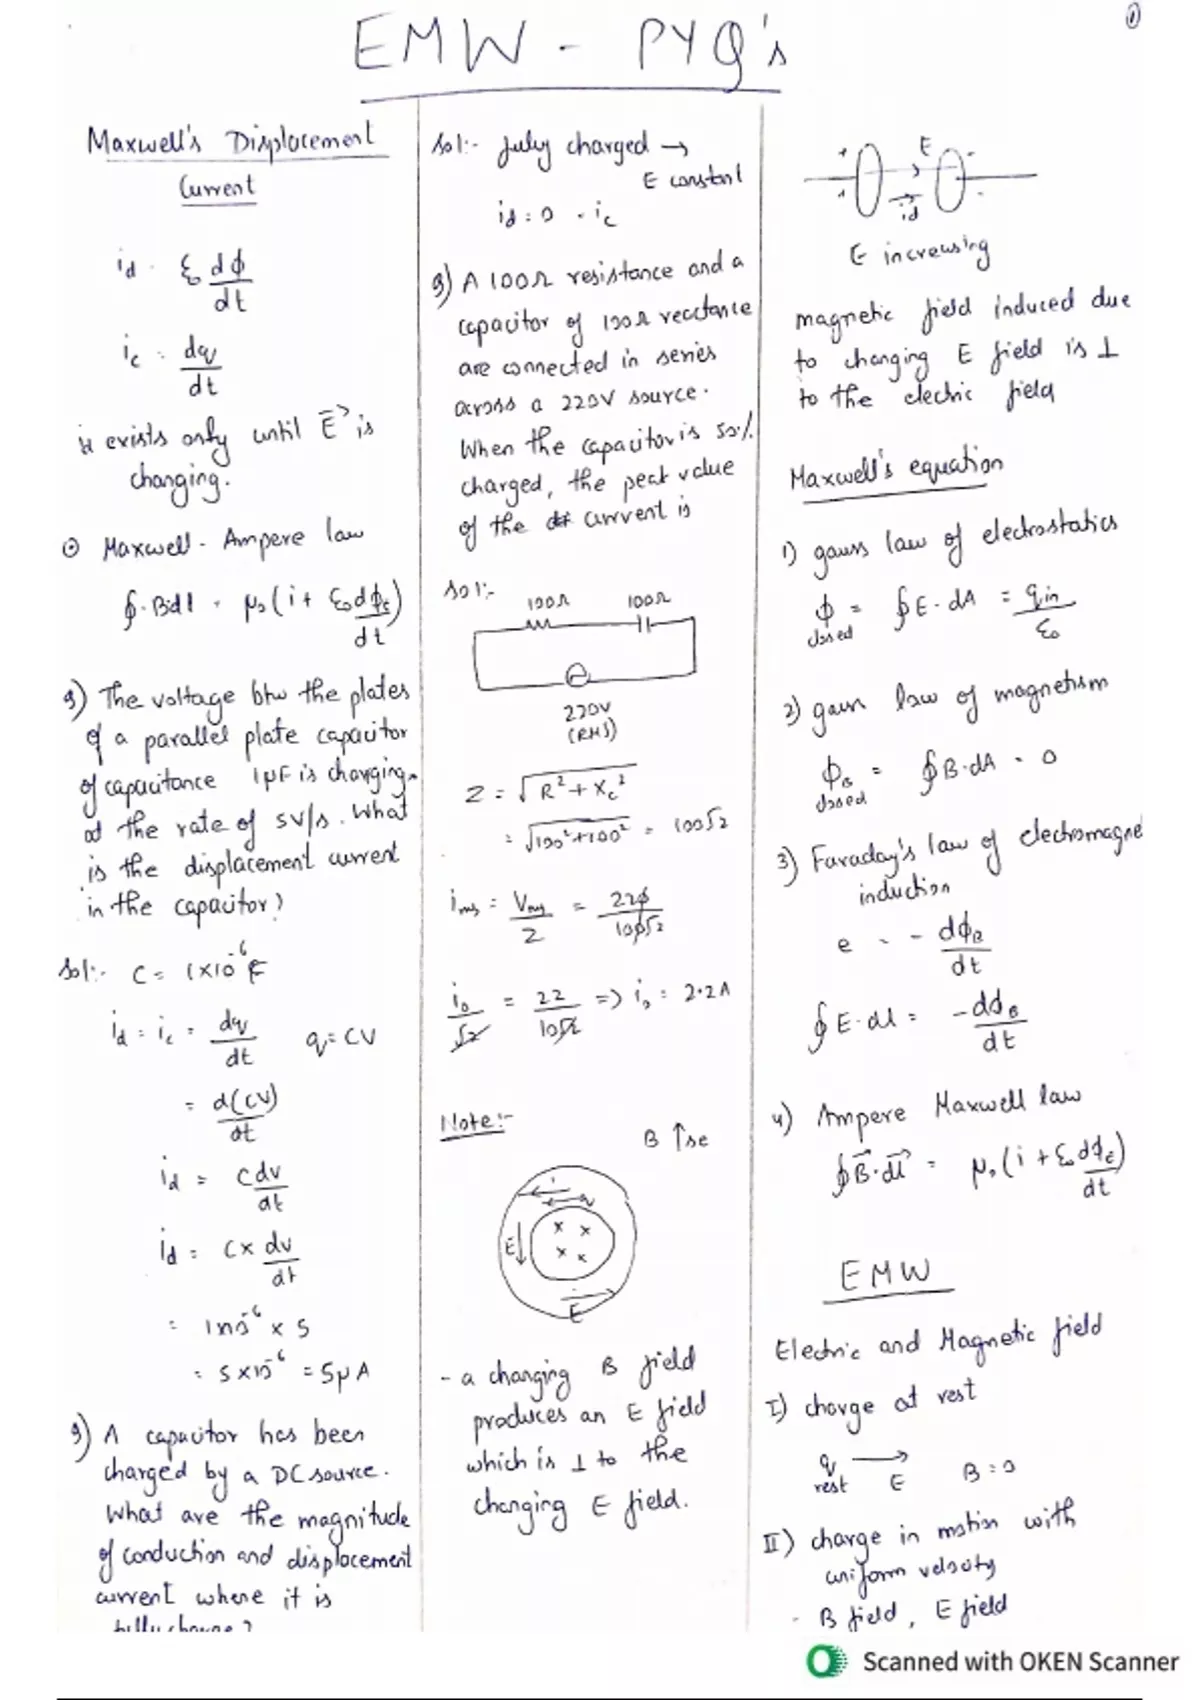 ①
EMW - PYQ's
Maxwell's Displacement
Current
id = ε₀ dφ/dt
ic = dq/dt
it exists only until E⃗ is
changing.
⊙ Maxwell - Ampere law
∮·Bdl = μ₀(i + ε₀dφE/dt)
Q) The voltage btw the plates
of a parallel plate capacitor
of capacitance 1μF is charging
at the rate of 5V/s. What
is the displacement current
in the capacitor?
Sol:- C = 1×10⁻⁶F
id = ic = dq/dt q=CV
= d(CV)/dt
id = Cdv/dt
id = C× dv/dt
= 1×10⁻⁶ × 5
= 5×10⁻⁶ = 5μA
Q) A capacitor has been
charged by a DC source.
What are the magnitude
of conduction and displacement
current where it is
fully charge?
Sol:- fully charged →
E constant
id = 0 = ic
Q) A 100Ω resistance and a
capacitor of 100Ω reactance
are connected in series
across a 220V source.
When the capacitor is 50%
charged, the peak value
of the current is
Sol:-
100Ω 100Ω
220V
(RMS)
Z = √R²+Xc²
= √100²+100² = 100√2
irms = Vrms/Z = 220/100√2
i₀/√2 = 22/10√2 => i₀ = 2.2A
Note:-
B ↑se
i
E
E
- a changing B field
produces an E field
which is ⊥ to the
changing E field.
+ E -
+ id -
E increasing
magnetic field induced due
to changing E field is ⊥
to the electric field
Maxwell's equation
1) gauss law of electrostatics
φ closed = ∮E·dA = qin/ε₀
2) gauss law of magnetism
φB closed = ∮B·dA = 0
3) Faraday's law of electromagne
induction
e = - dφB/dt
∮E·dl = -dφB/dt
4) Ampere Maxwell law
∮B⃗·dl⃗ = μ₀(i + ε₀dφE/dt)
EMW
Electric and Magnetic field
I) charge at rest
q rest → E B=0
II) charge in motion with
uniform velocity
- B field, E field
Scanned with OKEN Scanner